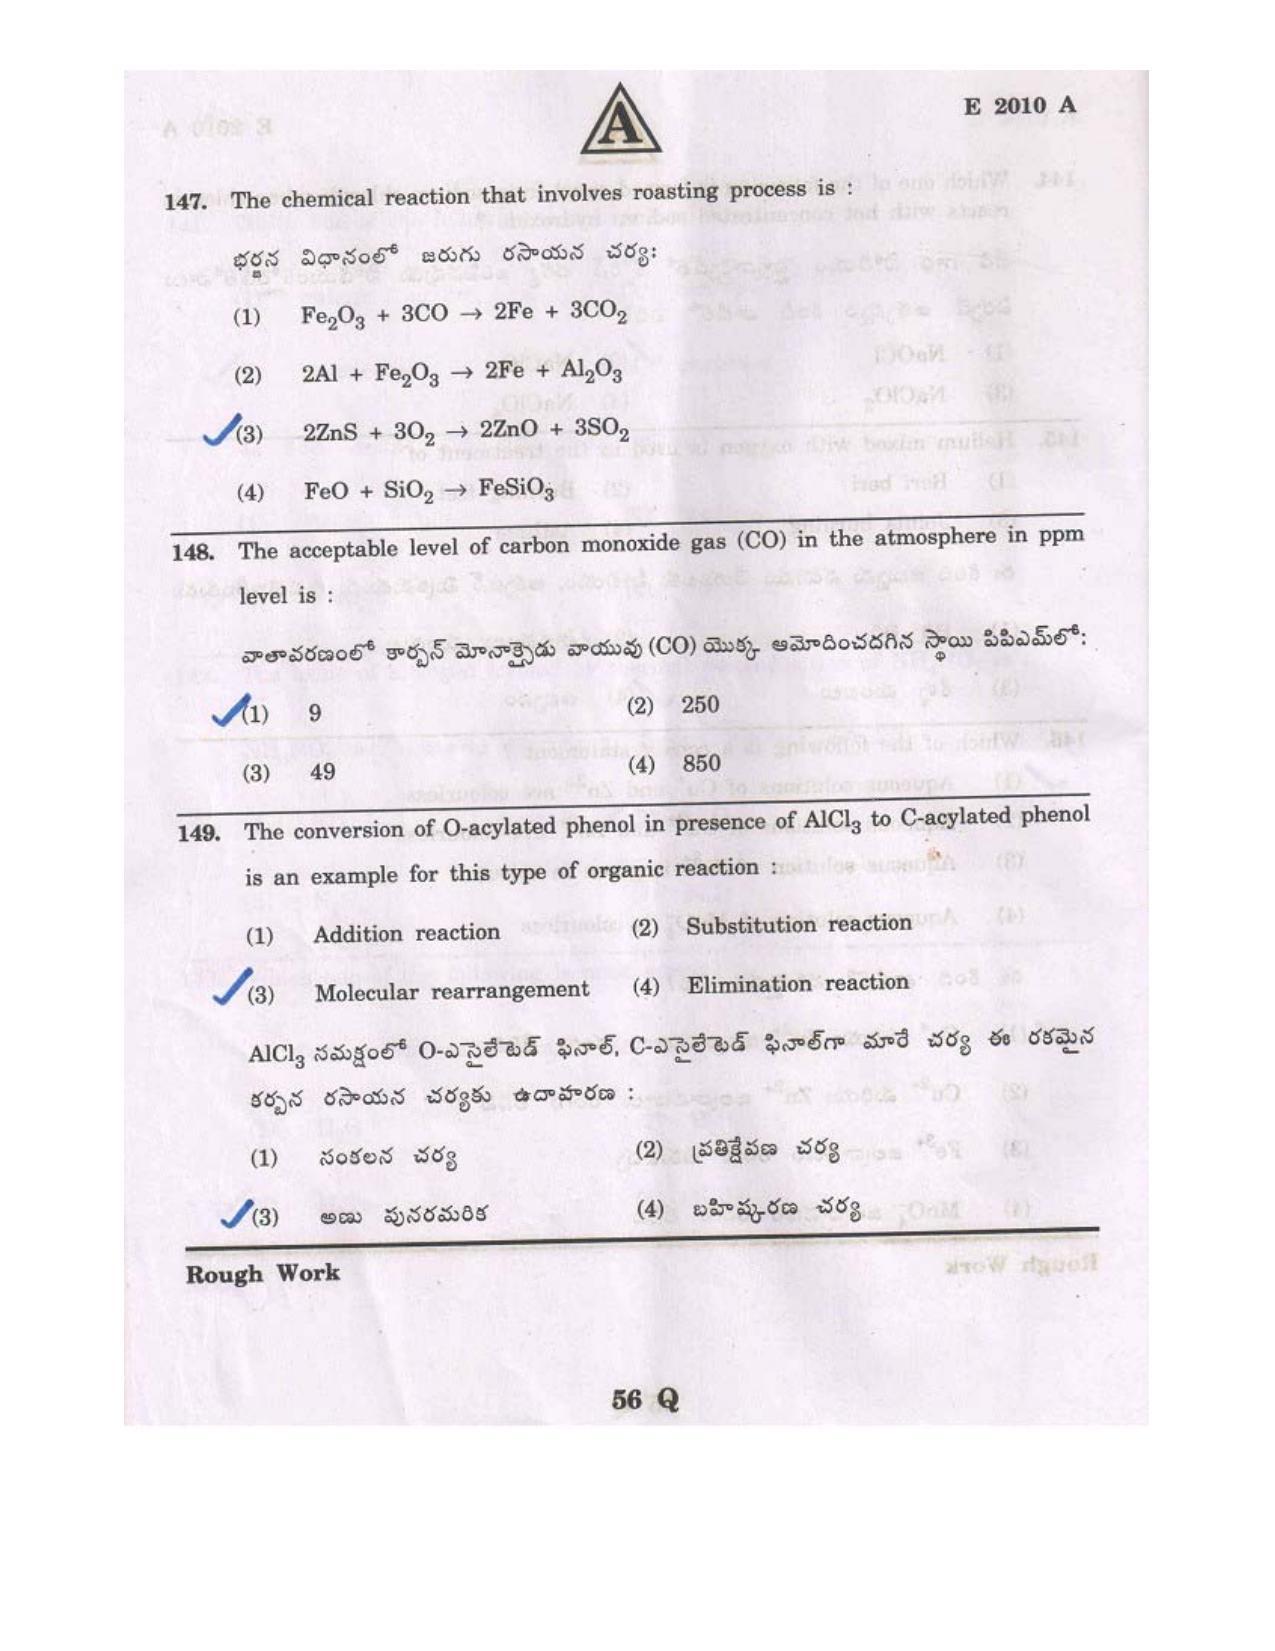 A
E 2010 A
147. The chemical reaction that involves roasting process is :
భర్జన విధానంలో జరుగు రసాయన చర్య:
(1) Fe₂O₃ + 3CO → 2Fe + 3CO₂
(2) 2Al + Fe₂O₃ → 2Fe + Al₂O₃
(3) 2ZnS + 3O₂ → 2ZnO + 3SO₂
(4) FeO + SiO₂ → FeSiO₃
148. The acceptable level of carbon monoxide gas (CO) in the atmosphere in ppm
level is :
వాతావరణంలో కార్బన్ మోనాక్సైడు వాయువు (CO) యొక్క ఆమోదించదగిన స్థాయి పిపిఎమ్‌లో:
(1) 9 (2) 250
(3) 49 (4) 850
149. The conversion of O-acylated phenol in presence of AlCl₃ to C-acylated phenol
is an example for this type of organic reaction :
(1) Addition reaction (2) Substitution reaction
(3) Molecular rearrangement (4) Elimination reaction
AlCl₃ సమక్షంలో O-ఎసైలేటెడ్ ఫినాల్, C-ఎసైలేటెడ్ ఫినాల్‌గా మారే చర్య ఈ రకమైన
కర్బన రసాయన చర్యకు ఉదాహరణ :
(1) సంకలన చర్య (2) ప్రతిక్షేపణ చర్య
(3) అణు పునరమరిక (4) బహిష్కరణ చర్య
Rough Work
56 Q